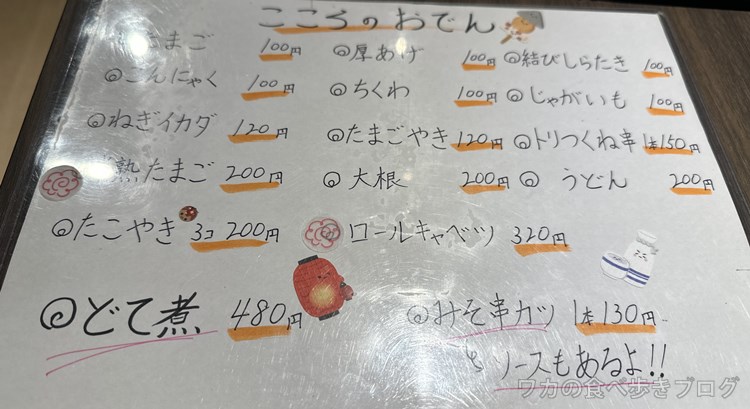 こころのおでん
たまご 100円 ◎厚あげ 100円 ◎結びしらたき 100円
◎こんにゃく 100円 ◎ちくわ 100円 ◎じゃがいも 100円
◎ねぎイカダ 120円 ◎たまごやき 120円 ◎トリつくね串 1本150円
熟たまご 200円 ◎大根 200円 ◎うどん 200円
◎たこやき 3コ 200円 ロールキャベツ 320円
◎どて煮 480円 ◎みそ串カツ 1本130円
ソースもあるよ!!
ワカの食べ歩きブログ